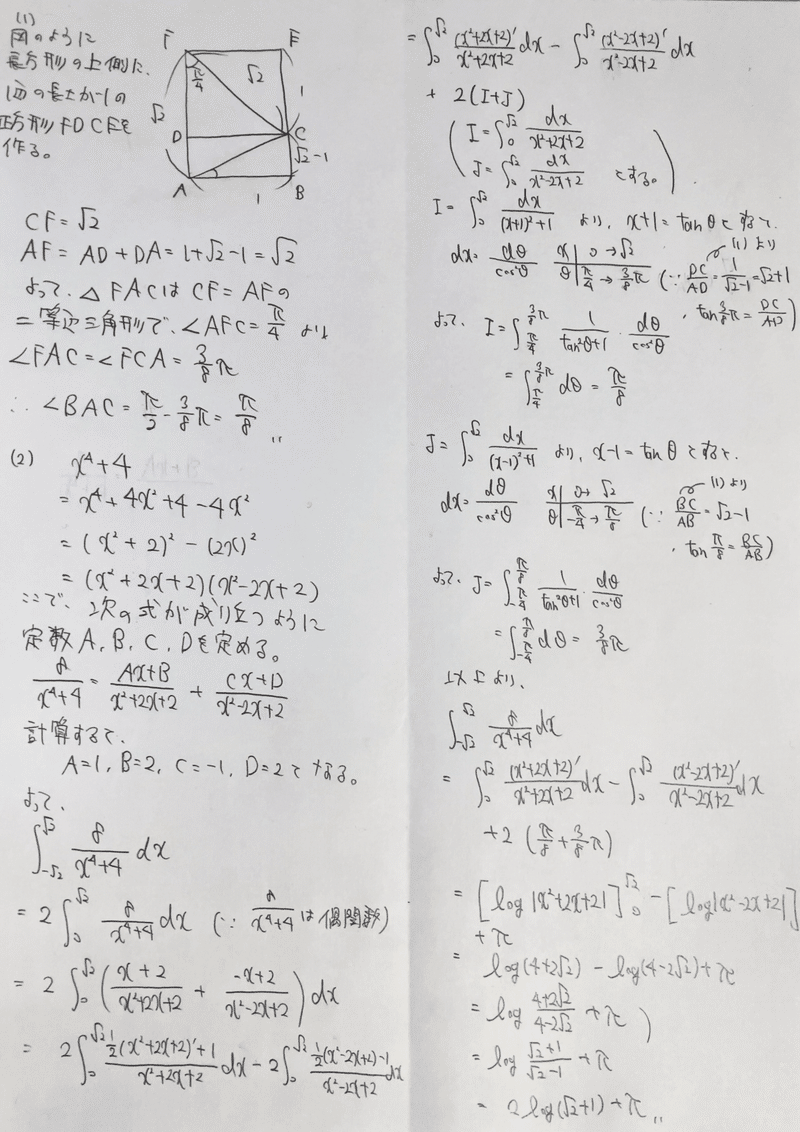 (1)
図のように
長方形の上側に、
1辺の長さが1の
正方形FDCEを
作る。
F E
π/4 √2 1
√2
D C
√2-1
A B
1
CF=√2
AF=AD+DA=1+√2-1=√2
よって、△FACはCF=AFの
二等辺三角形で、∠AFC=π/4 より
∠FAC=∠FCA=3/8π
∴ ∠BAC=π/2-3/8π=π/8 〃
(2) x⁴+4
=x⁴+4x²+4-4x²
=(x²+2)²-(2x)²
=(x²+2x+2)(x²-2x+2)
ここで、次の式が成り立つように
定数A,B,C,Dを定める。
8/(x⁴+4)=(Ax+B)/(x²+2x+2)+(Cx+D)/(x²-2x+2)
計算すると、
A=1,B=2,C=-1,D=2となる。
よって、
∫_{-√2}^{√2} 8/(x⁴+4) dx
=2∫_0^{√2} 8/(x⁴+4) dx (∵ 8/(x⁴+4) は偶関数)
=2∫_0^{√2} ((x+2)/(x²+2x+2)+(-x+2)/(x²-2x+2)) dx
=2∫_0^{√2} (½(x²+2x+2)'+1)/(x²+2x+2) dx-2∫_0^{√2} (½(x²-2x+2)-1)/(x²-2x+2) dx
=∫_0^{√2} (x²+2x+2)'/(x²+2x+2) dx-∫_0^{√2} (x²-2x+2)'/(x²-2x+2) dx
+2(I+J)
(I=∫_0^{√2} dx/(x²+2x+2)
J=∫_0^{√2} dx/(x²-2x+2) とする。)
I=∫_0^{√2} dx/((x+1)²+1) より、x+1=tanθとすると、
(1)より
dx=dθ/cos²θ x|0→√2 θ|π/4→3/8π (∵ DC/AD=1/(√2-1)=√2+1
, tan3/8π=DC/AD)
よって、I=∫_{π/4}^{3/8π} 1/(tan²θ+1)・dθ/cos²θ
=∫_{π/4}^{3/8π} dθ=π/8
J=∫_0^{√2} dx/((x-1)²+1) より、x-1=tanθとすると、
(1)より
dx=dθ/cos²θ x|0→√2 θ|-π/4→π/8 (∵ BC/AB=√2-1
, tanπ/8=BC/AB)
よって、J=∫_{-π/4}^{π/8} 1/(tan²θ+1)・dθ/cos²θ
=∫_{-π/4}^{π/8} dθ=3/8π
以上より、
∫_{-√2}^{√2} 8/(x⁴+4) dx
=∫_0^{√2} (x²+2x+2)'/(x²+2x+2) dx-∫_0^{√2} (x²-2x+2)'/(x²-2x+2) dx
+2(π/8+3/8π)
=[log|x²+2x+2|]_0^{√2}-[log|x²-2x+2|]
+π
=log(4+2√2)-log(4-2√2)+π
=log (4+2√2)/(4-2√2)+π)
=log (√2+1)/(√2-1)+π
=2log(√2+1)+π 〃